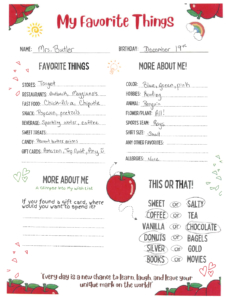 My Favorite Things
NAME: Mrs. Butler
BIRTHDAY: December 19th
FAVORITE THINGS
MORE ABOUT ME!
STORES: Target
COLOR: Blue, green, pink
RESTAURANTS:
HOBBIES: Reading
FAST FOOD: Chick-fil-a Chipotle
ANIMAL: Penguin
SNACK: Popcorn, pretzels
FLOWER/PLANT:
BEVERAGE: Sparkling water, coffee
SPORTS TEAM:
SWEET TREATS:
SHIRT SIZE: Small
CANDY: Peanut butter
ANY OTHER FAVOURITES:
GIFT CARDS: Amazon,
ALLERGIES: None
MORE ABOUT ME
If you found a gift card, where
would you want to spend it?
THIS OR THAT!
SWEET OR SALTY
COFFEE OR TEA
VANILLA OR CHOCOLATE
DONUTS OR BAGELS
SILVER OR GOLD
BOOKS OR MOVIES
Every day is a new chance to learn, laugh, and leave your
unique mark on the world!